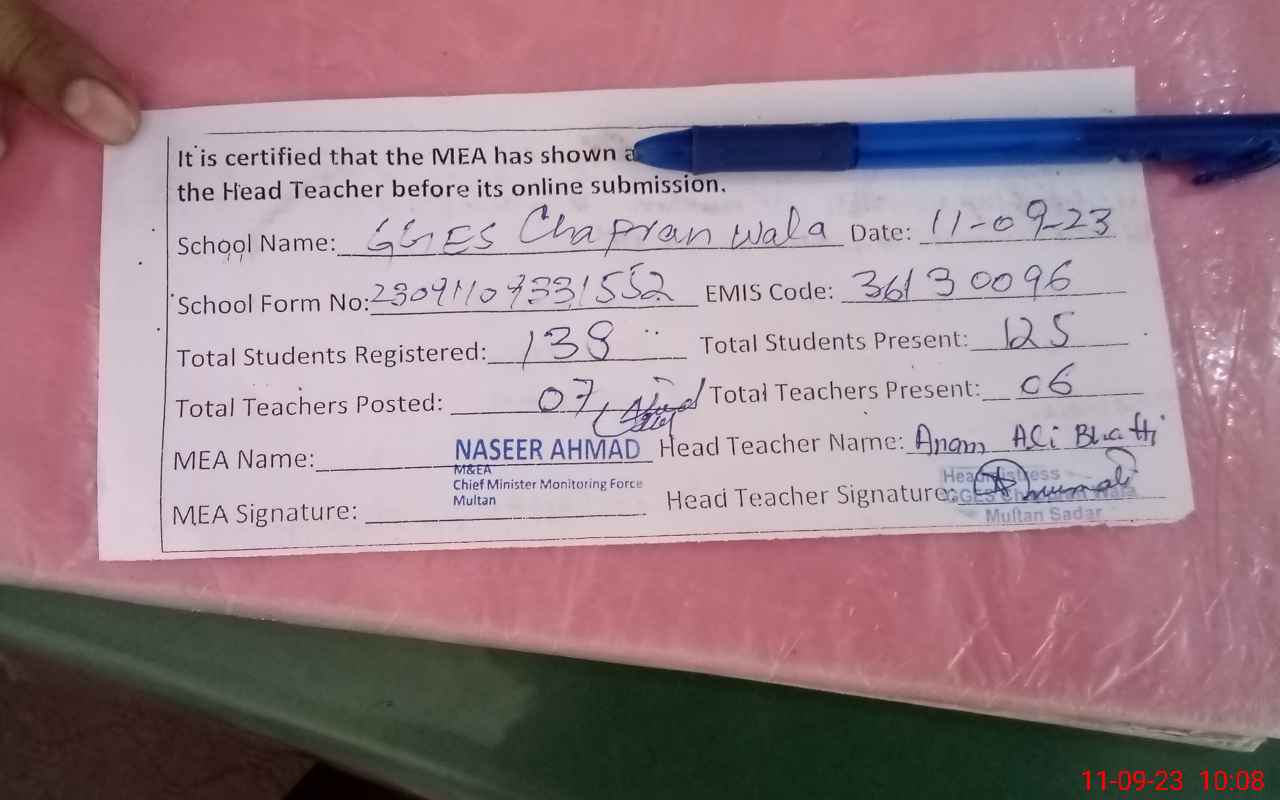 It is certified that the MEA has shown a
the Head Teacher before its online submission.
School Name: GGES Chapran wala Date: 11-09-23
School Form No: 23091109331552 EMIS Code: 36130096
Total Students Registered: 138 Total Students Present: 125
Total Teachers Posted: 07 Total Teachers Present: 06
MEA Name: NASEER AHMAD Head Teacher Name: Anam Ali Bhatti
M&EA
Chief Minister Monitoring Force
Multan
MEA Signature: Head Teacher Signature:
Headmistress
GGES Chapran Wala
Multan Sadar
11-09-23 10:08